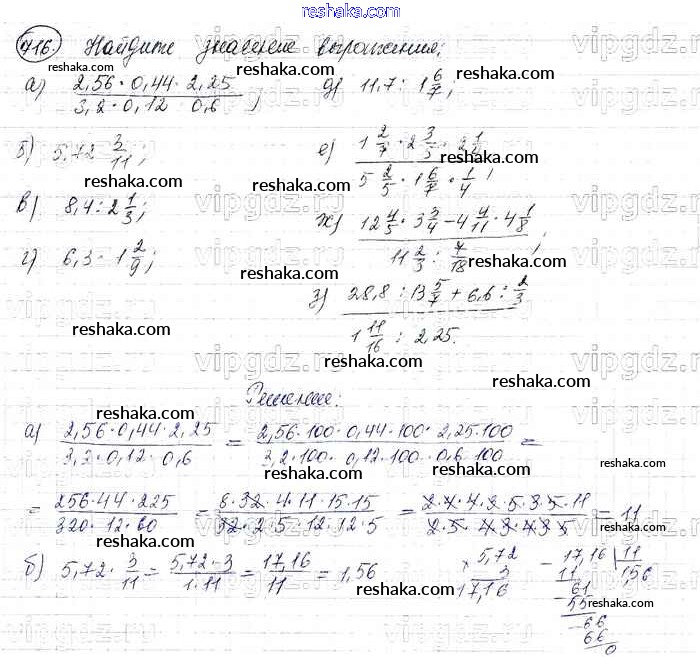 reshaka.com
716. Найдите значение выражения:
а) (2,56 · 0,44 · 2,25)/(3,2 · 0,12 · 0,6);
д) 11,7 : 1 6/7;
б) 5,72 · 3/11;
е) (1 2/7 · 2 3/5 · 2 1/)/(5 2/5 · 1 6/7 · 1/4);
в) 8,4 : 2 1/3;
ж) (12 4/5 · 3 3/4 - 4 4/11 · 4 1/8)/(11 2/3 : 7/18);
г) 6,3 · 1 2/9;
з) (28,8 : 13 5/7 + 6,6 : 2/3)/(1 11/16 : 2,25).
Решение:
а) (2,56 · 0,44 · 2,25)/(3,2 · 0,12 · 0,6) = (2,56·100 · 0,44·100 · 2,25·100)/(3,2·100 · 0,12·100 · 0,6·100) =
= (256·44·225)/(320·12·60) = (8·32·4·11·15·15)/(32·2·5·12·12·5) = (2·4·4·3·5·3·5·11)/(2·5·4·3·4·3·5) = 11
б) 5,72 · 3/11 = (5,72·3)/(1·11) = 17,16/11 = 1,56
× 5,72
3
17,16
- 17,16 | 11
11 1,56
61
- 55
- 66
66
0
reshaka.com
vipgdz.ru